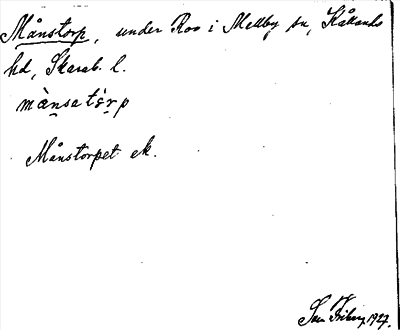 Månstorp, under Roo i Mellby sn, Kållands
hd, Skarab. l.
mànsatòrp
Månstorpet ek.
Sven Friberg 1927.